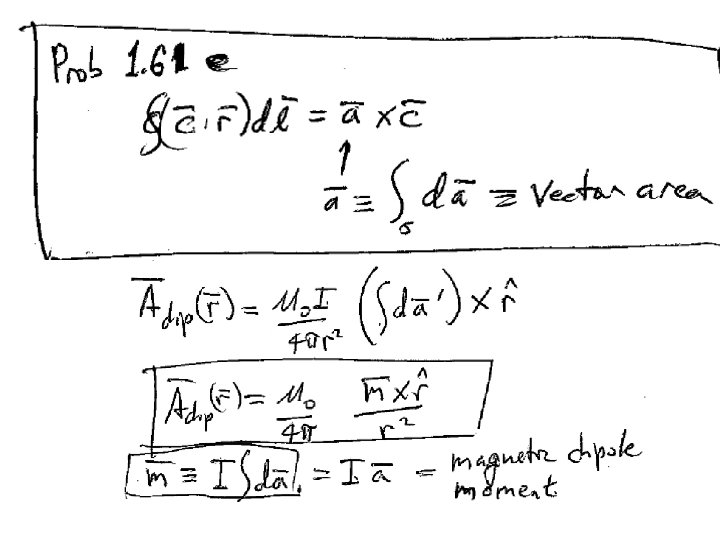 Prob 1.61 e
∮(c̄·r̄)dl̄ = ā × c̄
↑
ā ≡ ∫_σ dā ≡ Vector area
Ā_dip(r̄) = μ₀I/4πr² (∫dā′) × r̂
Ā_dip(r̄) = μ₀/4π m̄×r̂/r²
m̄ ≡ I∫dā′ = I ā = magnetic dipole
moment